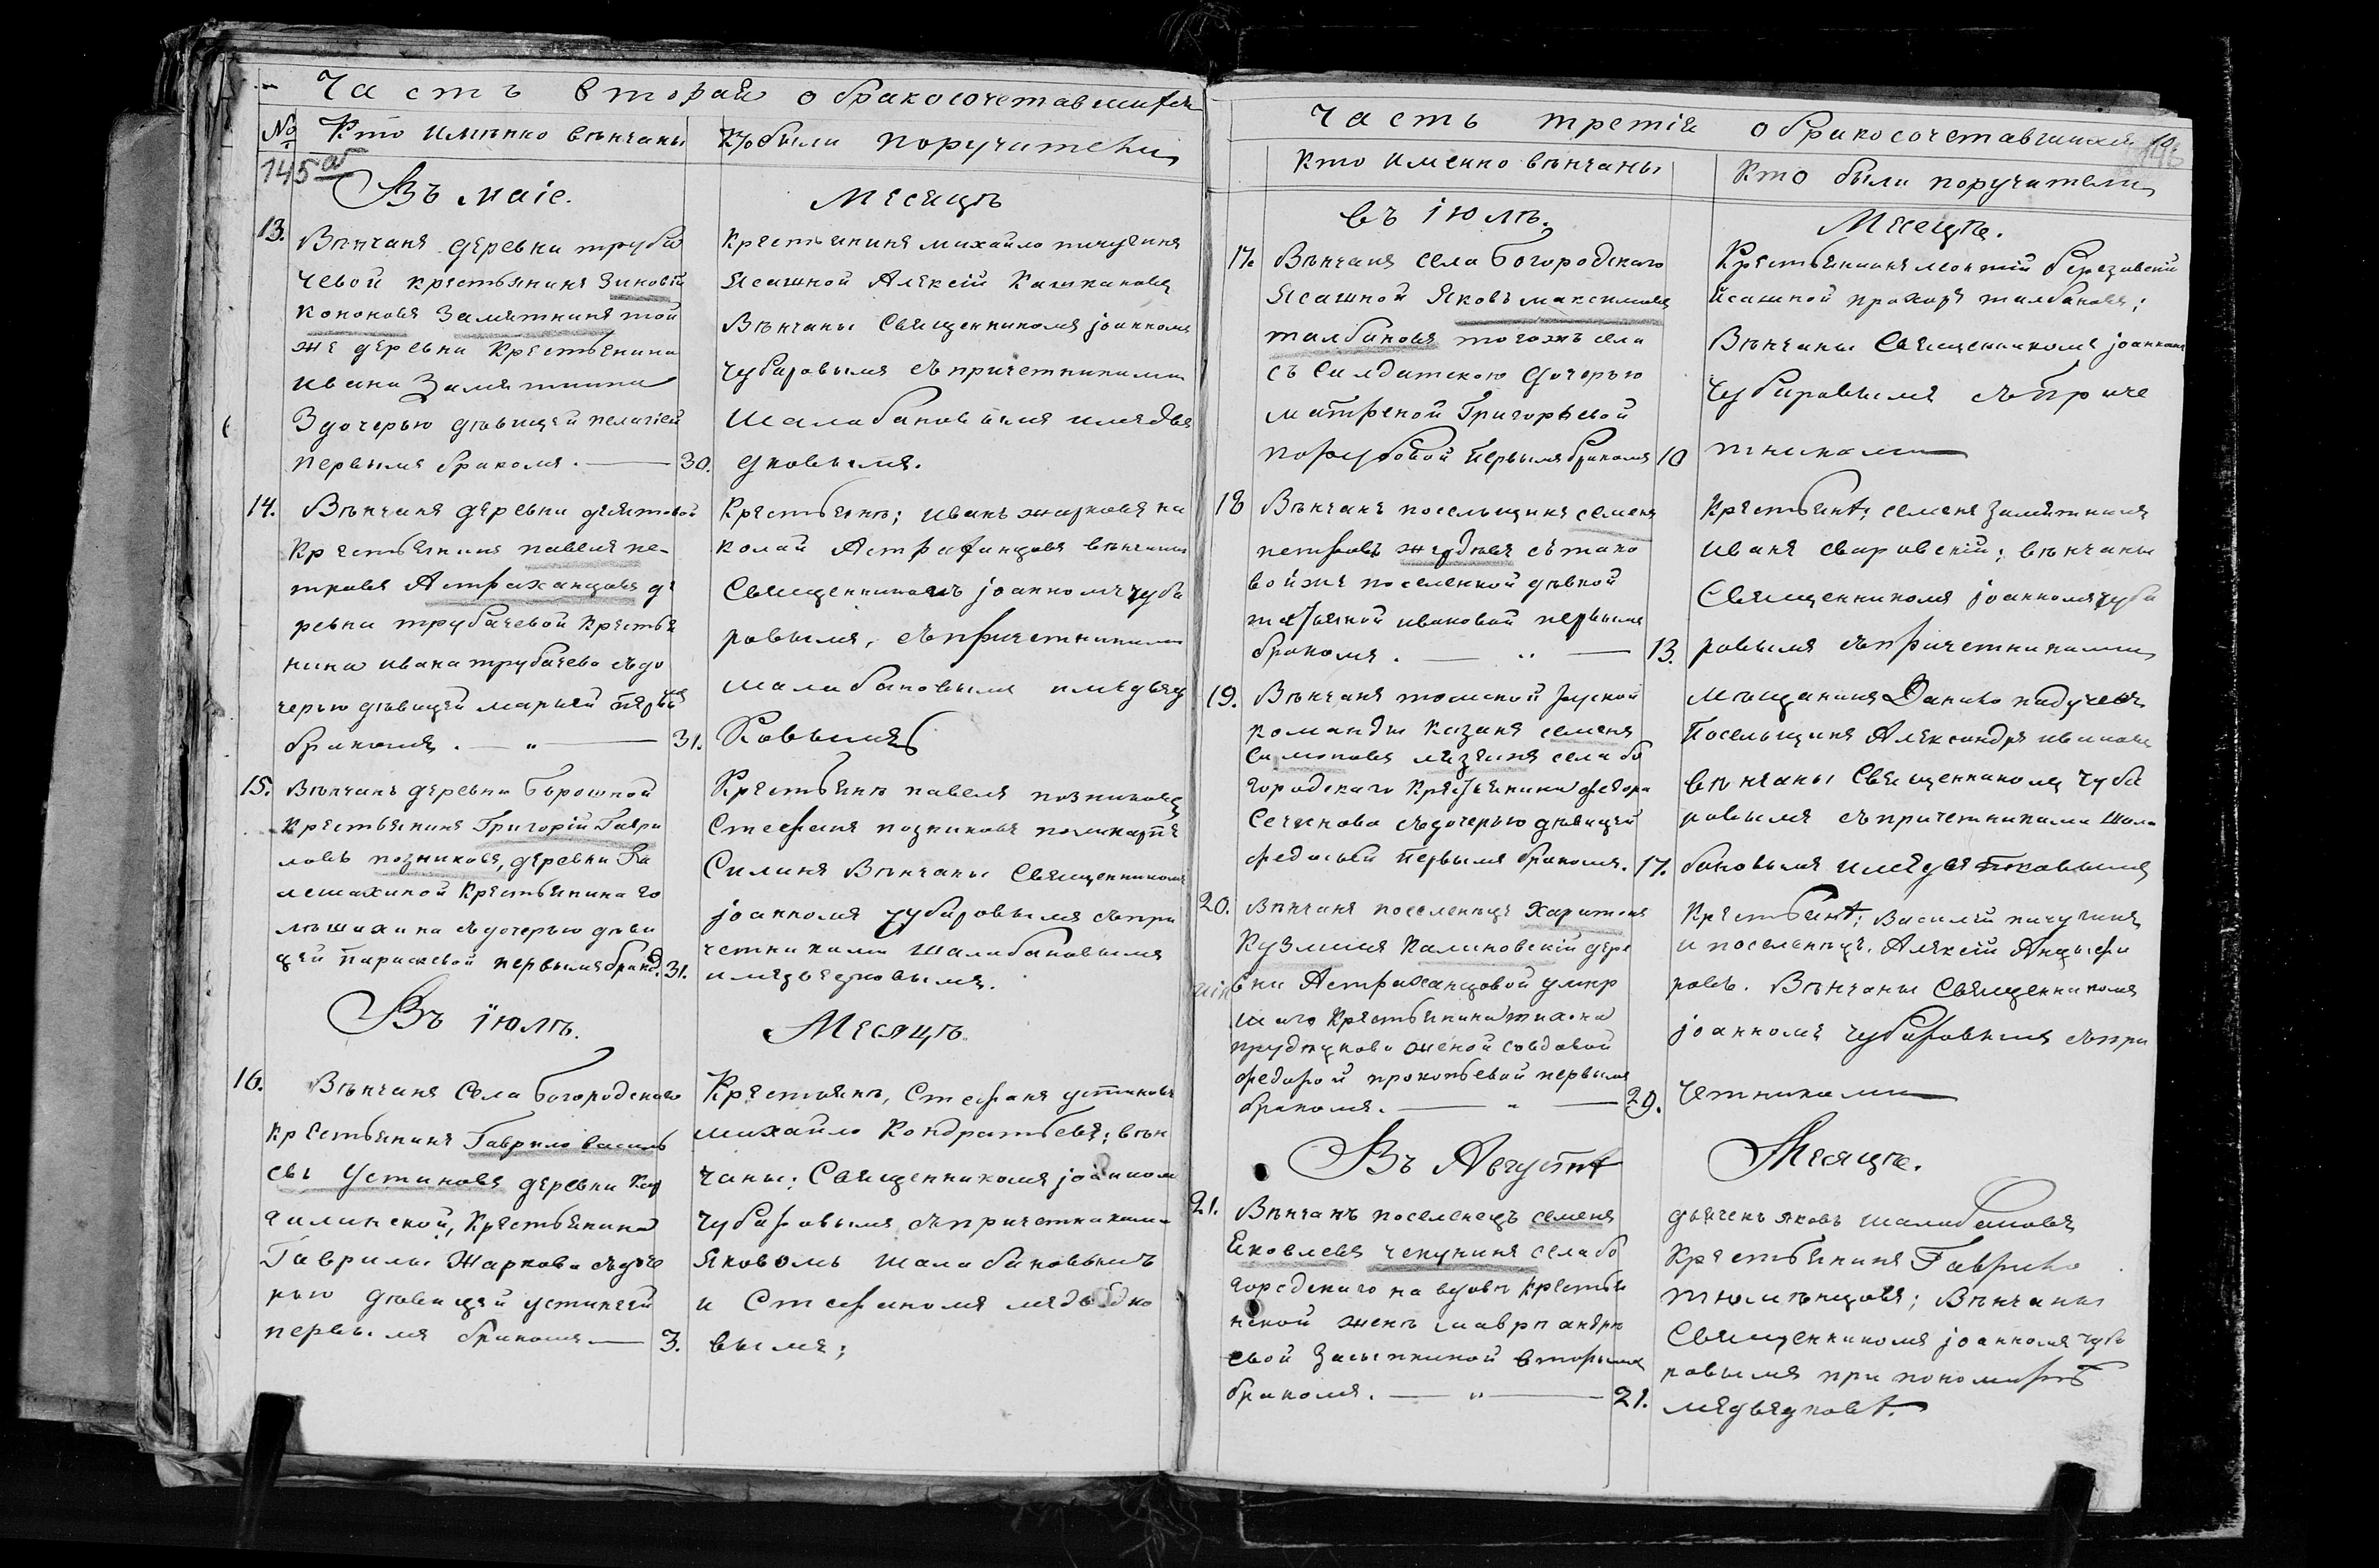 Часть вторая о бракосочетавшихся
№ Кто именно венчаны
Кто были поручители
145 об
Въ маіе.
Месяцѣ
13. Вѣнчанъ деревни труба
чевой крестьянинъ Зиновей
Кононовъ Замятнинъ той
же деревни Крестьянина
ивана Замятнина
Здочерью дѣвицей пелагіей
первымъ бракомъ. — 30.
Крестьянинъ михайло пичугинъ
Ясашной Алексій Кашкановъ
Вѣнчаны Священникомъ іоанномъ
чубаровымъ съпричетниками
Шалабановымъ имедве
дковымъ.
14. Вѣнчанъ деревни
Крестьянинъ павелъ пе-
тровъ Астраханцовъ де
ревни трубачевой Крестья
нина ивана трубачева съдо
черью дѣвицей марьей первымъ
бракомъ. — „ — 31.
Крестьянѣ; иванъ жарковъ ни
колай Астраханцовъ вѣнчаны
Священникомъ іоанномъ чуба
ровымъ, съпричетниками
шалабановымъ имедвед
ковымъ
15. Вѣнчанъ деревни
Крестьянинъ Григорій Гаври
ловъ позниковъ, деревни
лешахиной Крестьянина
съдочерью дѣви
цей первымъ брако. 31.
Крестьянѣ павелъ позниковъ
Стефанъ позниковъ поликарпъ
Силинъ Вѣнчаны Священникомъ
іоанномъ чубаровымъ съпри
четниками шалабановымъ
имедведковымъ.
Въ іюлѣ.
Месяцъ.
16. Вѣнчанъ Села Богородскаго
крестьянинъ Гаврило василь
евъ Устиновъ деревни
Крестьянина
Гаврилы Жаркова съдоче
рью дѣвицей устинеей
первымъ бракомъ — 3.
Крестьянѣ, Стефанъ устиновъ
михайло Кондратьевъ; вѣн
чаны: Священникомъ іоанном
чубаровымъ съпричетниками
Яковомъ шалабановымъ
и Стефаномъ медведко
вымъ;
Часть третія о бракосочетавшихся
146
Кто именно вѣнчаны
Кто были поручители
въ іюлѣ.
Месяцѣ.
17. Вѣнчанъ села Богородскаго
Ясашной Яковъ максимовъ
талбановъ тогожъ села
съ Салдатскою дочерью
матреной Григорьевой
первымъ бракомъ 10
Крестьянинъ леонтій березовскій
Ясашной прохоръ талбановъ;
Вѣнчаны Священникомъ іоанномъ
Чубаровымъ съприче
тниками
18 Вѣнчанъ посельщикъ семенъ
петровъ съ тако
войже поселенкой дѣвкой
татьяной ивановой первымъ
бракомъ. — „ — 13.
Крестьянѣ; семенъ Замятнинъ
иванъ вѣнчаны
Священникомъ іоанномъ чуба
ровымъ съпричетниками
19. Вѣнчанъ томской руской
команды Казакъ семенъ
Симоновъ села бо
городскаго Крестьянина федора
Сечинова съдочерью дѣвицей
федосьей первымъ бракомъ. 17.
мѣщанинъ Данило
Посельщикъ Александръ ивановъ
вѣнчаны Священникомъ чуба
ровымъ съпричетниками шала
бановымъ имедведковымъ
20. Вѣнчанъ поселенецъ Харитонъ
Кузминъ Калиновскій дере
вни Астраханцовой умер
шаго Крестьянина тихона
женой вдовой
федорой прокопьевой первымъ
бракомъ. — „ — 29.
Крестьянѣ; Василей пичугинъ
и поселенецъ, Алексій
Вѣнчаны Священникомъ
іоанномъ чубаровымъ съпри
четниками
Въ Августѣ
Месяцѣ.
21. Вѣнчанъ поселенецъ семенъ
Яковлевъ чекунинъ села бо
городскаго на вдовѣ крестья
нской женѣ маврѣ андре
евой Засыпкиной вторымъ
бракомъ. — „ — 21.
дьячекъ яковъ шалабановъ
Крестьянинъ Гаврило
тюменцовъ; Вѣнчаны
Священникомъ іоанномъ чуба
ровымъ при пономарѣ
медведковѣ.